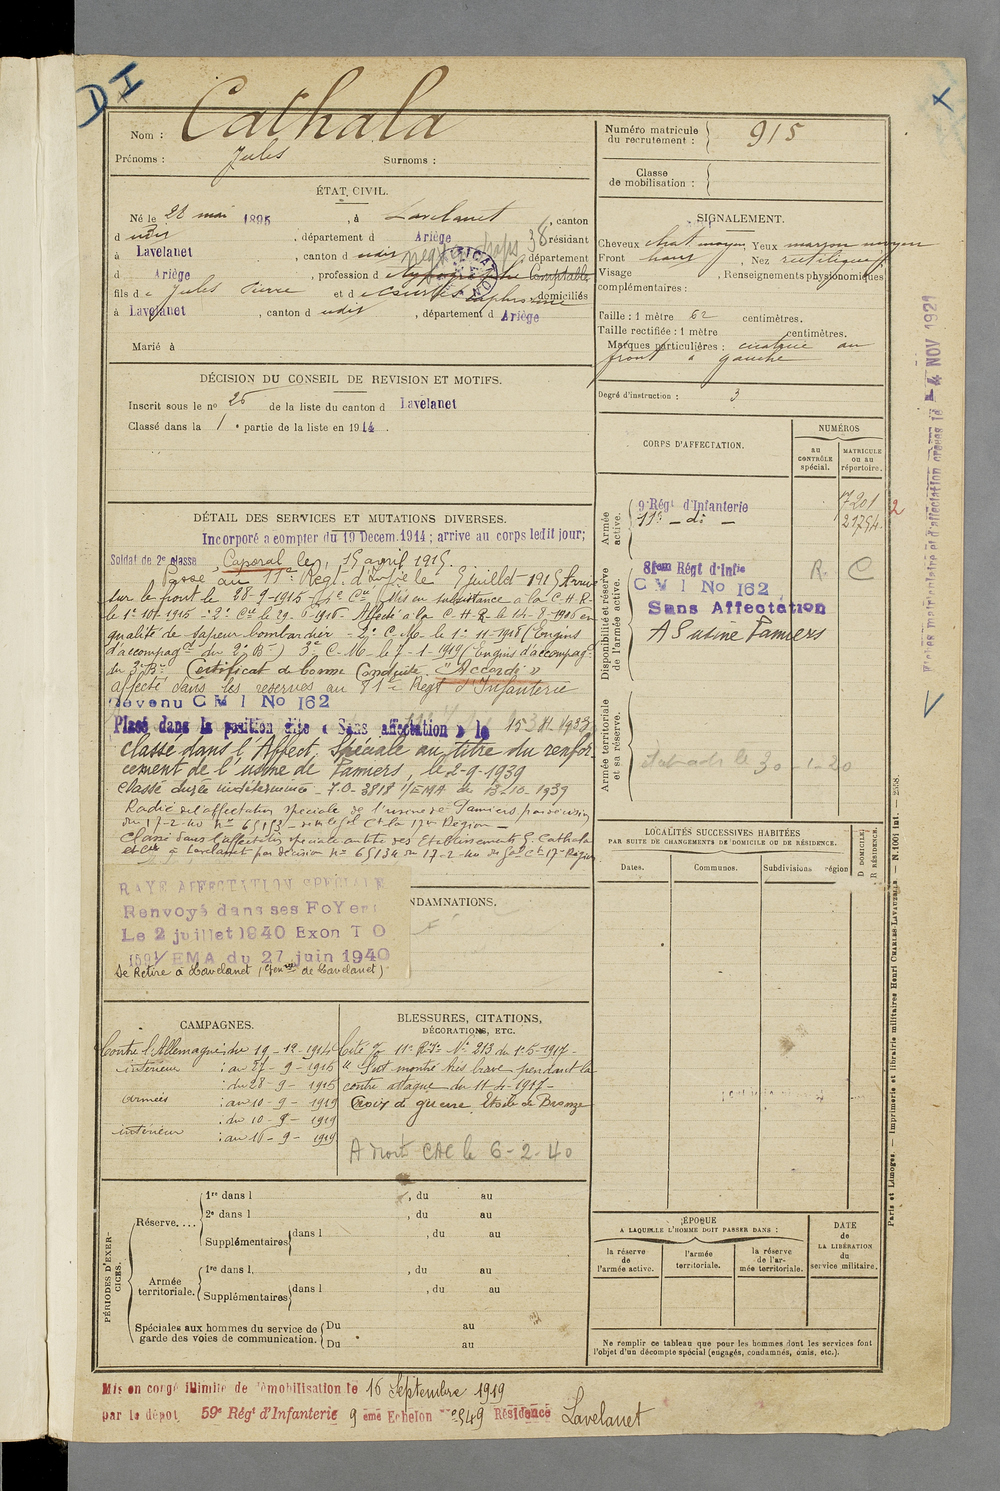 D I
Nom : Cathala
Prénoms : Jules Surnoms :
Numéro matricule
du recrutement : 915
Classe
de mobilisation :
ÉTAT CIVIL.
Né le 28 mai 1895, à Lavelanet, canton
d udit, département d Ariège, résidant
à Lavelanet, canton d udit, département
d Ariège, profession d Comptable
fils d e Jules Pierre et d domiciliés
à Lavelanet, canton d udit, département d Ariège
Marié à
SIGNALEMENT.
Cheveux chat moyen, Yeux marron moyen
Front haut, Nez rectiligne
Visage, Renseignements physionomiques
complémentaires :
Taille : 1 mètre 62 centimètres.
Taille rectifiée : 1 mètre centimètres.
Marques particulières : cicatrice au
front à gauche
Degré d'instruction : 3
DÉCISION DU CONSEIL DE REVISION ET MOTIFS.
Inscrit sous le no 26 de la liste du canton d Lavelanet
Classé dans la 1e partie de la liste en 1914.
DÉTAIL DES SERVICES ET MUTATIONS DIVERSES.
Incorporé a compter du 19 Decem. 1914 ; arrive au corps ledit jour;
Soldat de 2e classe, Caporal le 15 avril 1915.
Passé au 11e Régt d'Infie le 9 juillet 1915 Arrivé
sur le front le 28-9-1915 - Mis en subsistance à la C.H.R.
le 1-101-1915 - 2e Cie le 29-6-1916 - Affecté à la C.H.R. le 14-8-1916 en
qualité de Sapeur bombardier - 2e C.M. le 1-11-1918 (Engins
d'accompagt du 2e Bn) 3e C.M. le 7-1-1919 (Engins d'accompagt
du 3e Bn Certificat de bonne Conduite "Accordé"
affecté dans les réserves au 81e Régt d'Infanterie
devenu C M I No 162
Placé dans la position dite « Sans affectation » le 15-11-1933
classé dans l'Affect. Spéciale au titre du renfor-
cement de l'usine de Pamiers, le 2-9-1939
Classé durée indéterminée - J.O. 3818 1/EMA du 13-10-1939
Radié de l'affectation spéciale de l'usine de Pamiers par décision
du 17-2-40 no 65133 Gal Ct la 17e Région -
Classé dans l'affectation spéciale au titre des Etablissements G. Cathala
et Cie à Lavelanet par décision no 65134 du 17-2-40 du Gal Ct 17e Région
RAYE AFFECTATION SPECIALE
Renvoyé dans ses FoYers
Le 2 juillet 1940 Exon T O
1591/EMA du 27 juin 1940
Se Retire à Lavelanet (de Lavelanet)
NDAMNATIONS.
CORPS D'AFFECTATION.
NUMÉROS
au
CONTRÔLE
spécial.
MATRICULE
ou au
répertoire.
Armée
active.
9e Régt d'Infanterie 7201
11e - di - 21754
2
Disponibilité et réserve
de l'armée active.
81em Régt d'Infie R. C
C M I No 162
Sans Affectation
A S usine Pamiers
Armée territoriale
et sa réserve.
30-1-20
Fiches matriculaire et d'affectation créées le - 4 NOV 1921
LOCALITÉS SUCCESSIVES HABITÉES
PAR SUITE DE CHANGEMENTS DE DOMICILE OU DE RÉSIDENCE.
Dates. Communes. Subdivisions région
D DOMICILE,
R RÉSIDENCE.
CAMPAGNES.
Contre l'Allemagne du 19-12-1914
intérieur : au 27-9-1915
: du 28-9-1915
armées : au 10-9-1919
: du 10-9-1919
intérieur : au 16-9-1919
BLESSURES, CITATIONS,
DÉCORATIONS, ETC.
Cité 11e R.I. No 213 du 1-5-1917 -
"S'est montré très brave pendant la
contre attaque du 11-4-1917 -
Croix de guerre, Etoile de Bronze
A droit CAC le 6-2-40
PÉRIODES D'EXER-
CICES.
Réserve....
1re dans l, du au
2e dans l, du au
Supplémentaires dans l, du au
Armée
territoriale.
1re dans l, du au
Supplémentaires dans l, du au
Spéciales aux hommes du service de
garde des voies de communication.
Du au
Du au
ÉPOQUE
A LAQUELLE L'HOMME DOIT PASSER DANS :
la réserve
de
l'armée active.
l'armée
territoriale.
la réserve
de l'ar-
mée territoriale.
DATE
de
LA LIBÉRATION
du
service militaire.
Ne remplir ce tableau que pour les hommes dont les services font
l'objet d'un décompte spécial (engagés, condamnés, omis, etc.).
Paris et Limoges. — Imprimerie et librairie militaires Henri CHARLES-LAVAUZELLE. — N. 1061 int. — 2558.
Mis en congé illimité de démobilisation le 16 Septembre 1919
par le dépot 59e Régt d'Infanterie 9 ème Echelon no 549 Résidence Lavelanet